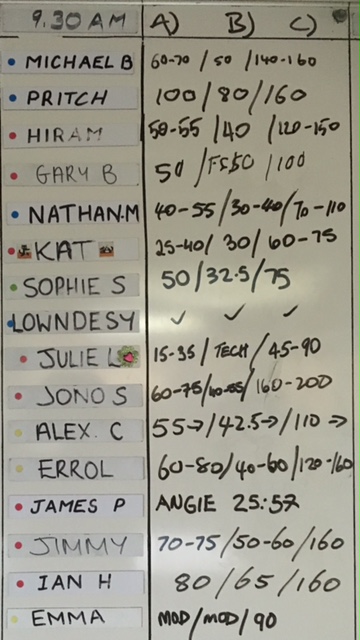 9.30 AM A) B) C)
MICHAEL B 60-70 / 50 / 140-160
PRITCH 100 / 80 / 160
HIRAM 50-55 / 40 / 120-150
GARY B 50 / / 100
NATHAN.M 40-55 / 30-40 / 70-110
KAT 25-40 / 30 / 60-75
SOPHIE S 50 / 32.5 / 75
LOWNDESY ✓ ✓ ✓
JULIE L 15-35 / TECH / 45-90
JONO S 60-75 / 40-55 / 160-200
ALEX. C 55→ / 42.5→ / 110→
ERROL 60-80 / 40-60 / 120-160
JAMES P ANGIE 25:57
JIMMY 70-75 / 50-60 / 160
IAN H 80 / 65 / 160
EMMA MOD / MOD / 90